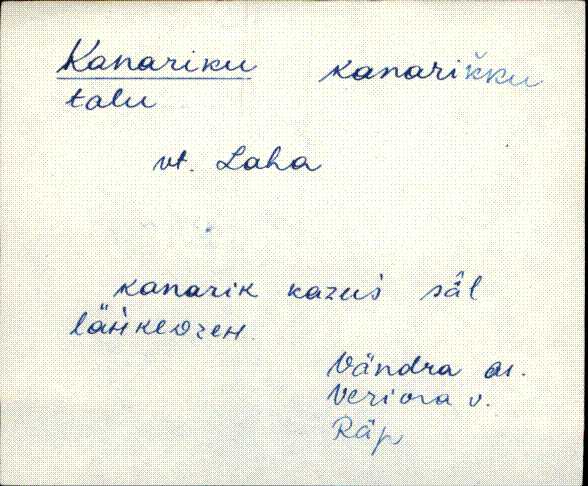 Kanariku kanarikku
talu
vt. Laha
kanarik kazus säl
läńkeozeh
Vändra as.
Veriora v.
Räp